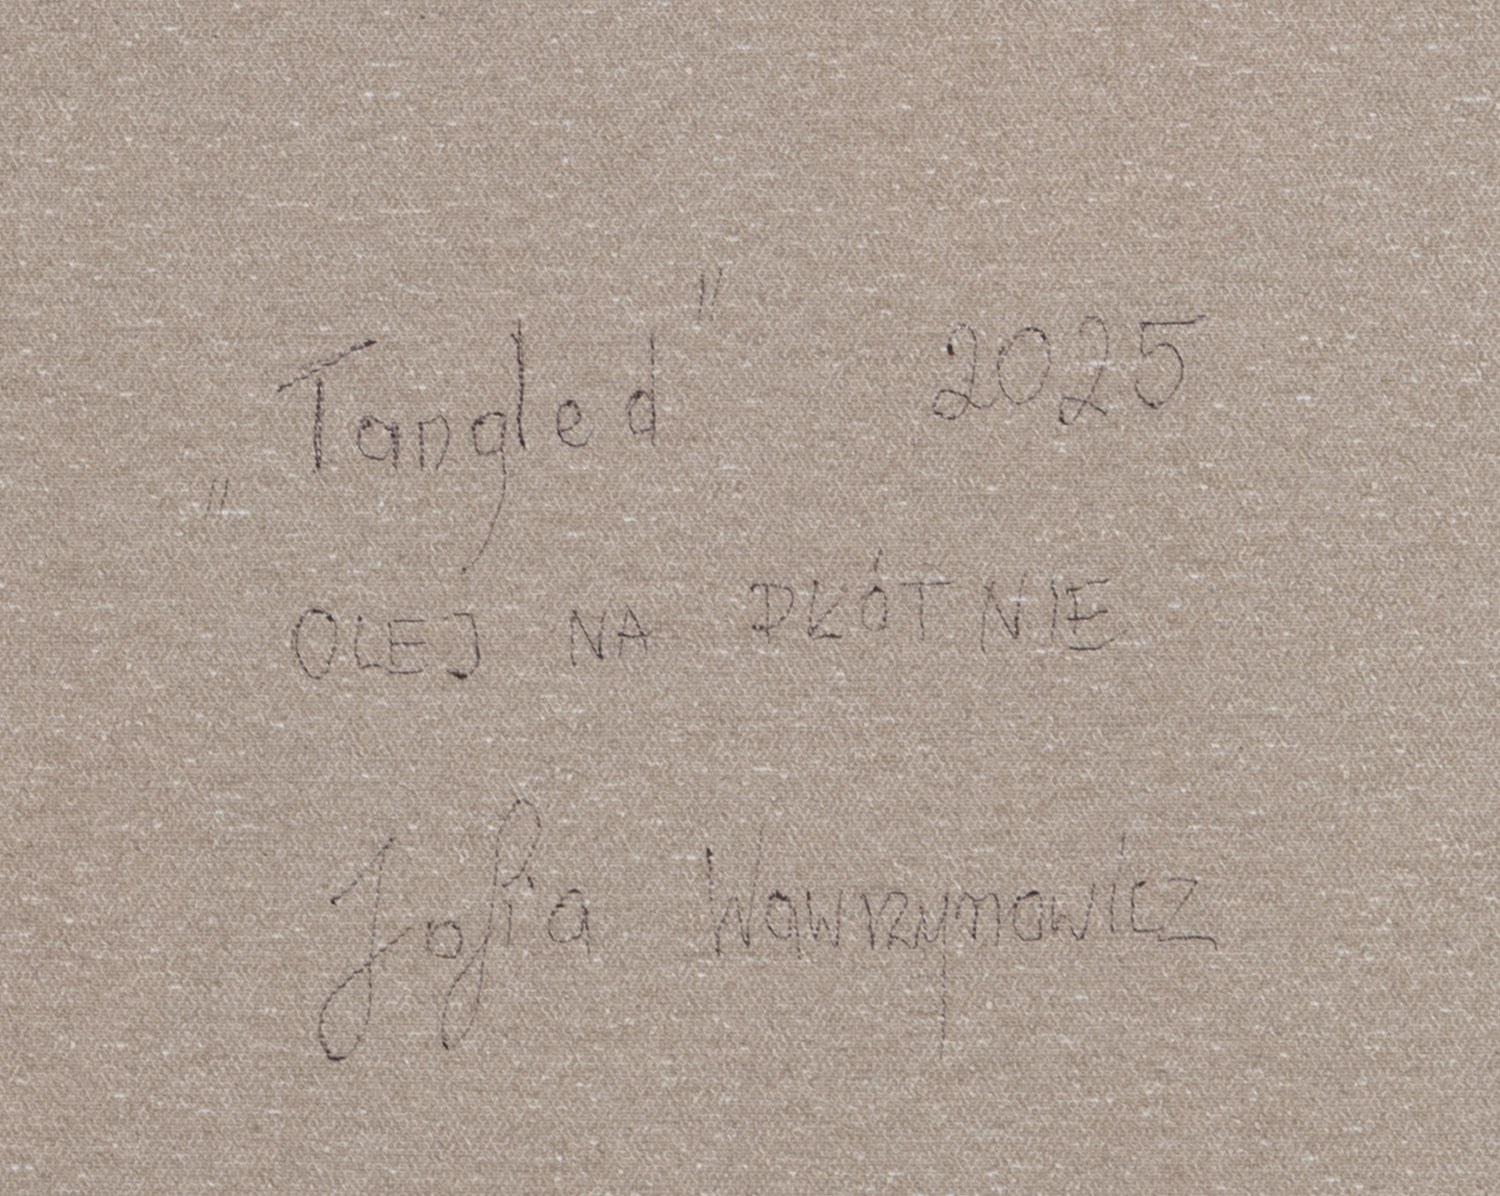 „Tangled" 2025
OLEJ NA PŁÓTNIE
Zofia Wawrzynowicz